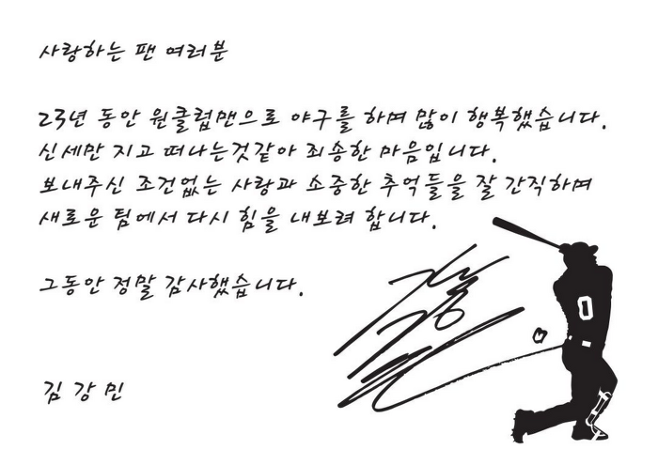 사랑하는 팬 여러분
23년 동안 원클럽맨으로 야구를 하며 많이 행복했습니다.
신세만 지고 떠나는것같아 죄송한 마음입니다.
보내주신 조건없는 사랑과 소중한 추억들을 잘 간직하며
새로운 팀에서 다시 힘을 내보려 합니다.
그동안 정말 감사했습니다.
김강민
0